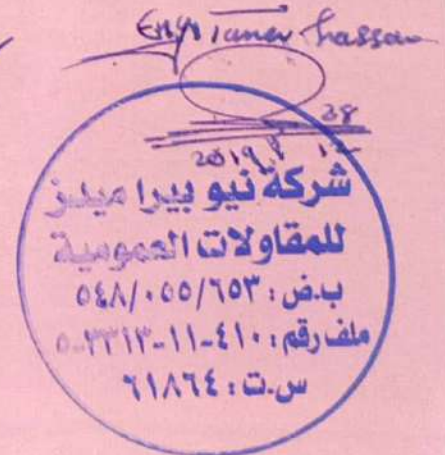 Eng/ Tamer Hassan
28
2019 12
شركة نيو بيرا ميدز
للمقاولات العمومية
ب.ض: ٥٤٨/٠٥٥/٦٥٣
ملف رقم: ٤١٠-١١-٣٣١٣-٥
س.ت: ٦١٨٦٤